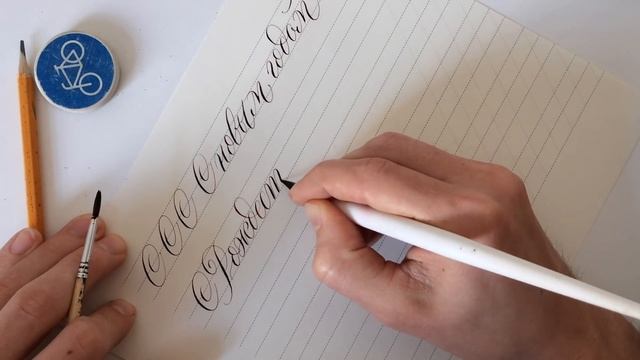 С С С С новым годом
С Рождест